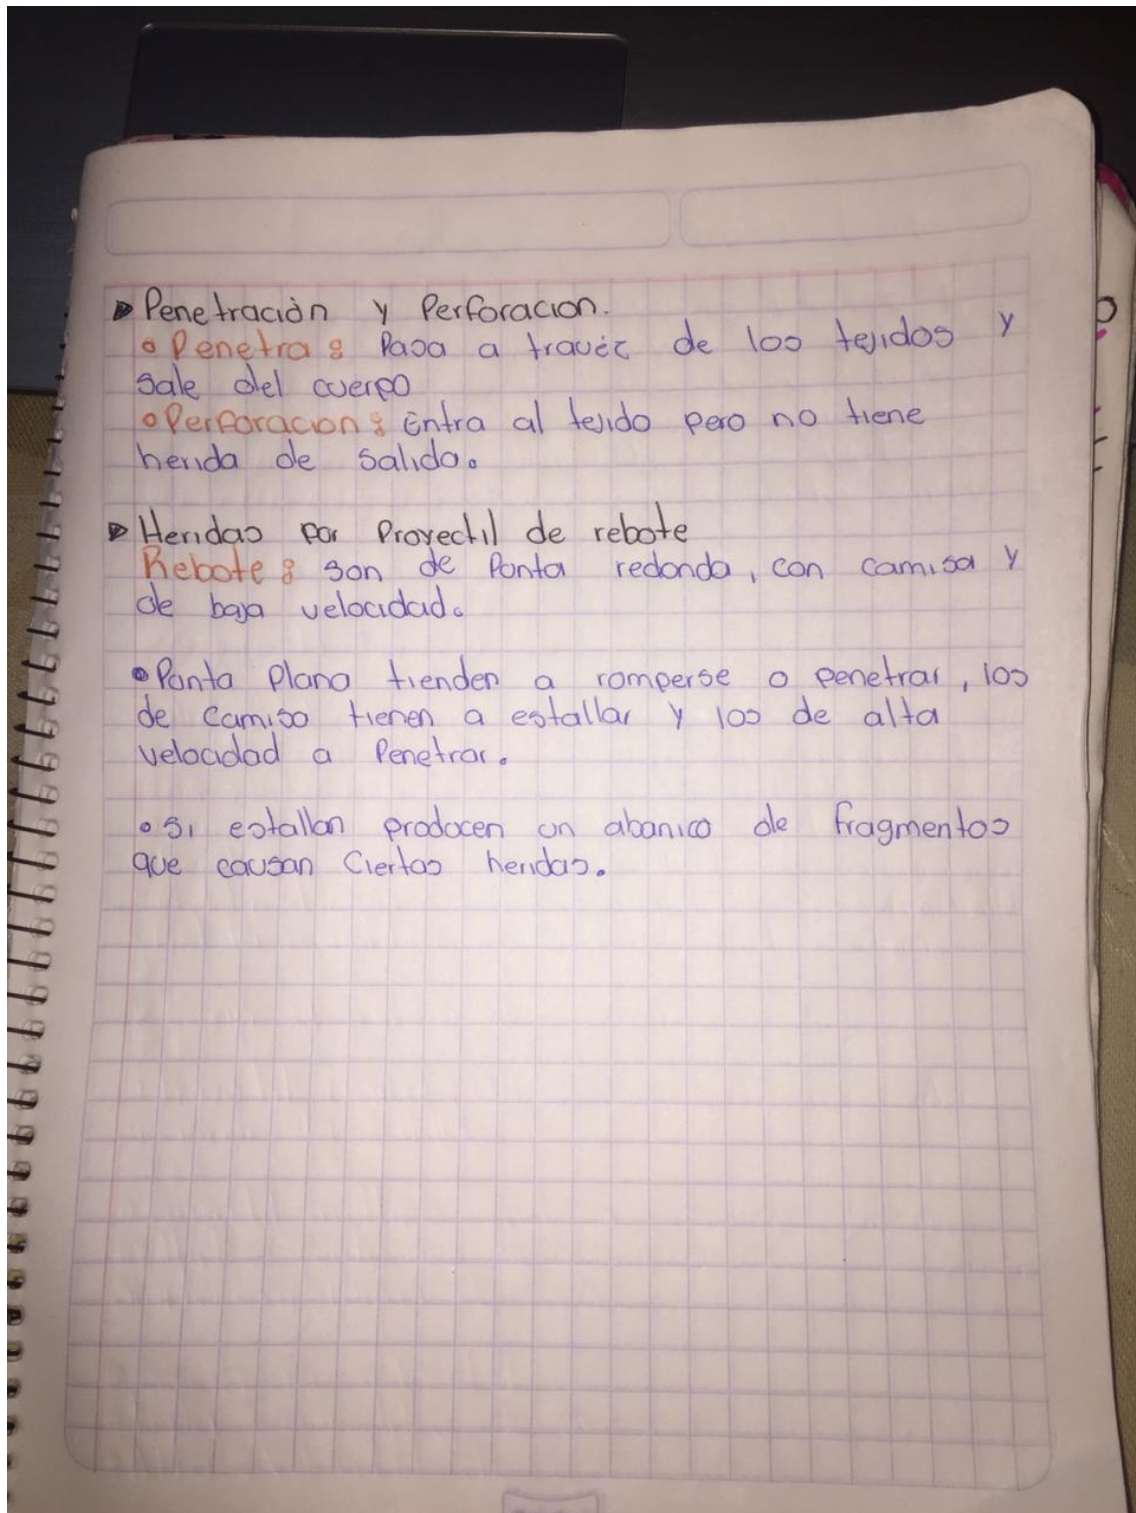 Penetraciòn y Perforacion.
Penetra: Pasa a travéz de los tejidos y
sale del cuerpo
Perforacion: Entra al tejido pero no tiene
herida de salida.
Heridas por Proyectil de rebote
Rebote: son de Punta redonda, con camisa y
de baja velocidad.
Punta Plana tienden a romperse o penetrar, los
de camisa tienen a estallar y los de alta
velocidad a Penetrar.
Si estallan producen un abanico de fragmentos
que causan Ciertas heridas.